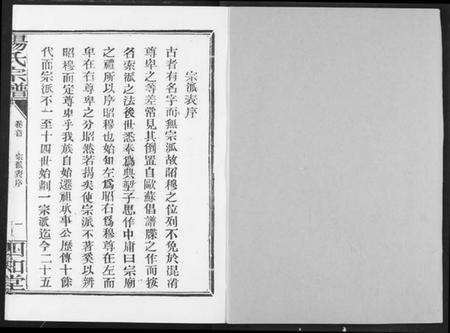 宗派表序
古者有名字而無宗派故昭穆之位列不免於混淆
尊卑之等差常見其倒置自歐蘇倡譜牒之作而被
名宗派之法後世悉奉為典型子思作中庸曰宗廟
之禮所以序昭穆也始知左為昭右為穆尊在左而
卑在右尊卑之分昭然若揭矣使宗派不著奚以辨
昭穆而定尊卑乎我族自始遷祖承事公歷傳十餘
代而宗派不一至十四世始劃一宗派迄今二十五
楊氏宗譜
卷首
宗派表序
一
四知堂